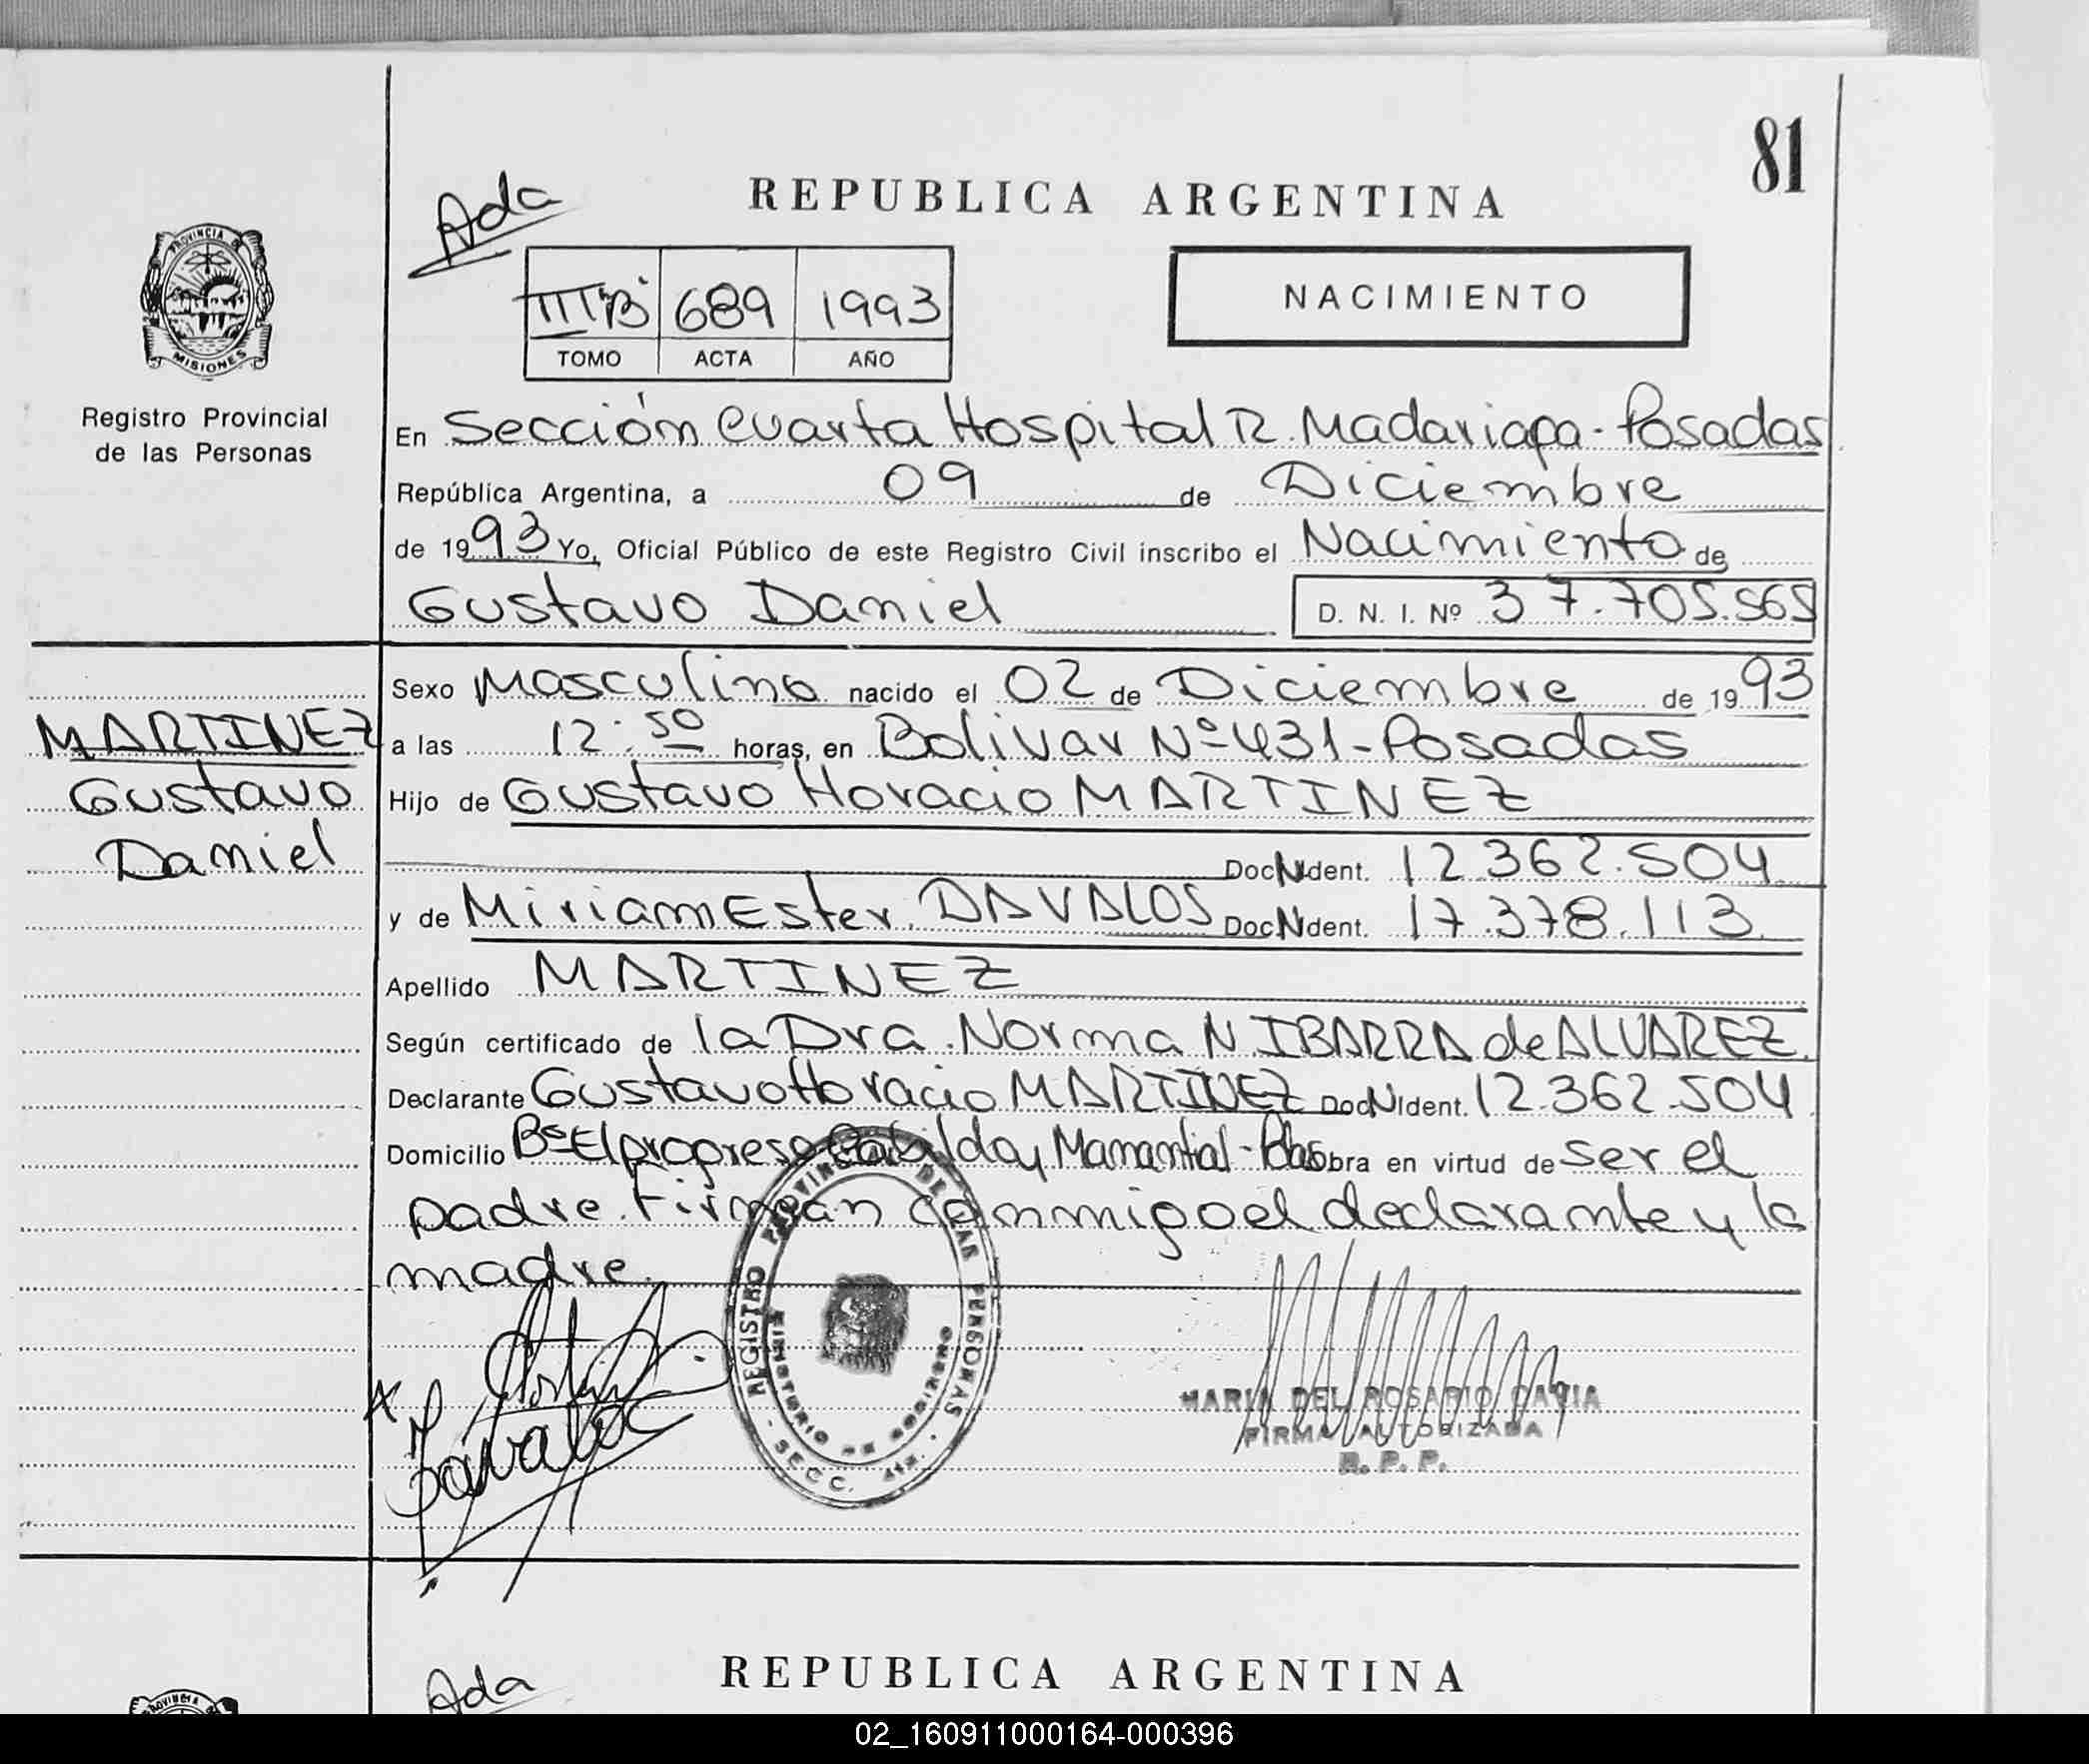 81
Ada
REPUBLICA ARGENTINA
III "B" 689 1993
TOMO ACTA AÑO
NACIMIENTO
PROVINCIA DE MISIONES
Registro Provincial
de las Personas
En Sección Cuarta Hospital R. Madariaga - Posadas
República Argentina, a 09 de Diciembre
de 1993 Yo, Oficial Público de este Registro Civil inscribo el Nacimiento de
Gustavo Daniel D. N. I. Nº 37.705.565
MARTINEZ
Gustavo
Daniel
Sexo Masculino nacido el 02 de Diciembre de 1993
a las 12:50 horas, en Bolivar Nº 431 - Posadas
Hijo de Gustavo Horacio MARTINEZ
Doc N Ident. 12.362.504
y de Miriam Ester DAVALOS Doc N Ident. 17.378.113
Apellido MARTINEZ
Según certificado de la Dra. Norma N. IBARRA de ALVAREZ.
Declarante Gustavo Horacio MARTINEZ Doc N Ident. 12.362.504
Domicilio Bº El progreso Cabildo y Manantial - Pdas Obra en virtud de ser el
padre. Firman conmigo el declarante y la
madre.
REGISTRO PROVINCIAL DE LAS PERSONAS
MINISTERIO DE GOBIERNO
SECC. 4ta.
MARIA DEL ROSARIO
FIRMA AUTORIZADA
R. P. P.
Davalos
REPUBLICA ARGENTINA
Ada
PROVINCIA
02_160911000164-000396